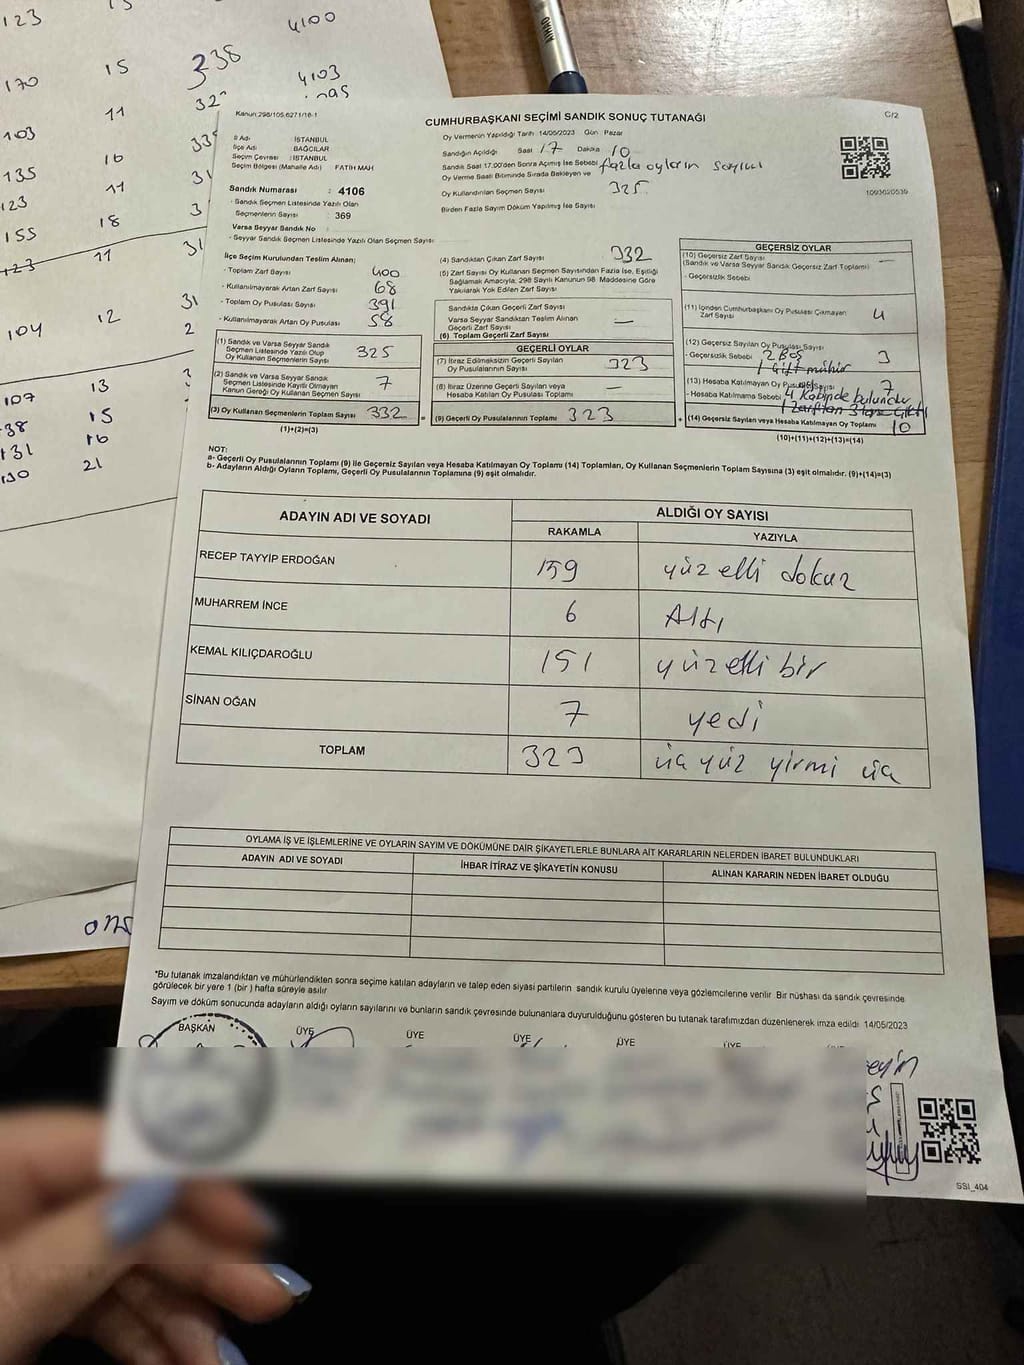 123
15
4100
170
15
338
4103
103
11
135
16
123
11
155
18
123
11
31
104
12
31
107
13
15
16
21
Kanun:298/105,6271/16-1
CUMHURBAŞKANI SEÇİMİ SANDIK SONUÇ TUTANAĞI
C/2
İl Adı : İSTANBUL
İlçe Adı : BAĞCILAR
Seçim Çevresi : İSTANBUL
Seçim Bölgesi (Mahalle Adı) FATİH MAH
Oy Vermenin Yapıldığı Tarih 14/05/2023 Gün Pazar
Sandığın Açıldığı Saat 17 Dakika 10
Sandık Saat 17.00'den Sonra Açımış İse Sebebi fazla oyların sayımı
Oy Verme Saati Bitiminde Sırada Bekleyen ve
Oy Kullandırılan Seçmen Sayısı 325
Birden Fazla Sayım Döküm Yapılmış İse Sayısı
Sandık Numarası : 4106
- Sandık Seçmen Listesinde Yazılı Olan
Seçmenlerin Sayısı : 369
Varsa Seyyar Sandık No
- Seyyar Sandık Seçmen Listesinde Yazılı Olan Seçmen Sayısı
İlçe Seçim Kurulundan Teslim Alınan;
- Toplam Zarf Sayısı 400
- Kullanılmayarak Artan Zarf Sayısı 68
- Toplam Oy Pusulası Sayısı 391
- Kullanılmayarak Artan Oy Pusulası 58
(1) Sandık ve Varsa Seyyar Sandık
Seçmen Listesinde Yazılı Olup
Oy Kullanan Seçmenlerin Sayısı 325
(2) Sandık ve Varsa Seyyar Sandık
Seçmen Listesinde Kayıtlı Olmayan
Kanun Gereği Oy Kullanan Seçmen Sayısı 7
(3) Oy Kullanan Seçmenlerin Toplam Sayısı 332
(1)+(2)=(3)
(4) Sandıktan Çıkan Zarf Sayısı 332
(5) Zarf Sayısı Oy Kullanan Seçmen Sayısından Fazla İse, Eşitliği
Sağlamak Amacıyla; 298 Sayılı Kanunun 98. Maddesine Göre
Yakılarak Yok Edilen Zarf Sayısı
Sandıkta Çıkan Geçerli Zarf Sayısı
Varsa Seyyar Sandıktan Teslim Alınan
Geçerli Zarf Sayısı —
(6) Toplam Geçerli Zarf Sayısı
GEÇERLİ OYLAR
(7) İtiraz Edilmeksizin Geçerli Sayılan
Oy Pusulasının Sayısı 323
(8) İtiraz Üzerine Geçerli Sayılan veya
Hesaba Katılan Oy Pusulası Toplamı —
(9) Geçerli Oy Pusulalarının Toplamı 323
1093620539
GEÇERSİZ OYLAR
(10) Geçersiz Zarf Sayısı
(Sandık ve Varsa Seyyar Sandık Geçersiz Zarf Toplamı) —
-Geçersizlik Sebebi
(11) İçinden Cumhurbaşkanı Oy Pusulası Çıkmayan
Zarf Sayısı 4
(12) Geçersiz Sayılan Oy Pusulası Sayısı 3
- Geçersizlik Sebebi 2 BOŞ
1 Çift mühür
(13) Hesaba Katılmayan Oy Pusulası Sayısı 7
- Hesaba Katılmama Sebebi 4 Kabinde bulundu
1 zarftan 3 tane Çıktı
(14) Geçersiz Sayılan veya Hesaba Katılmayan Oy Toplamı 10
(10)+(11)+(12)+(13)=(14)
NOT:
a- Geçerli Oy Pusulasının Toplamı (9) ile Geçersiz Sayılan veya Hesaba Katılmayan Oy Toplamı (14) Toplamları, Oy Kullanan Seçmenlerin Toplam Sayısına (3) eşit olmalıdır. (9)+(14)=(3)
b- Adayların Aldığı Oyların Toplamı, Geçerli Oy Pusulalarının Toplamına (9) eşit olmalıdır.
ADAYIN ADI VE SOYADI
ALDIĞI OY SAYISI
RAKAMLA
YAZIYLA
RECEP TAYYİP ERDOĞAN 159 yüz elli dokuz
MUHARREM İNCE 6 Altı
KEMAL KILIÇDAROĞLU 151 yüz elli bir
SİNAN OĞAN 7 yedi
TOPLAM 323 üç yüz yirmi üç
OYLAMA İŞ VE İŞLEMLERİNE VE OYLARIN SAYIM VE DÖKÜMÜNE DAİR ŞİKAYETLERLE BUNLARA AİT KARARLARIN NELERDEN İBARET BULUNDUKLARI
ADAYIN ADI VE SOYADI
İHBAR İTİRAZ VE ŞİKAYETİN KONUSU
ALINAN KARARIN NEDEN İBARET OLDUĞU
*Bu tutanak imzalandıktan ve mühürlendikten sonra seçime katılan adayların ve talep eden siyasi partilerin sandık kurulu üyelerine veya gözlemcilerine verilir Bir nüshası da sandık çevresinde
görülecek bir yere 1 (bir) hafta süreyle asılır
Sayım ve döküm sonucunda adayların aldığı oyların sayılarını ve bunların sandık çevresinde bulunanlara duyurulduğunu gösteren bu tutanak tarafımızdan düzenlenerek imza edildi 14/05/2023
BAŞKAN
ÜYE
ÜYE
ÜYE
ÜYE
ÜYE
SSI_404